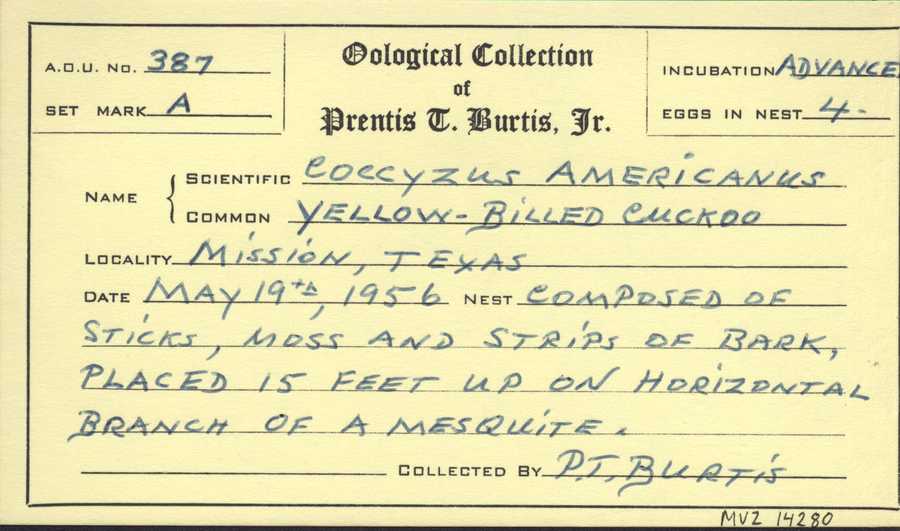 A.O.U. No. 387
SET MARK A
Oological Collection
of
Prentis T. Burtis, Jr.
INCUBATION ADVANCE
EGGS IN NEST 4-
NAME
SCIENTIFIC COCCYZUS AMERICANUS
COMMON YELLOW-BILLED CUCKOO
LOCALITY MISSION, TEXAS
DATE MAY 19th, 1956 NEST COMPOSED OF
STICKS, MOSS AND STRIPS OF BARK,
PLACED 15 FEET UP ON HORIZONTAL
BRANCH OF A MESQUITE.
COLLECTED BY P.T. BURTIS
MVZ 14280